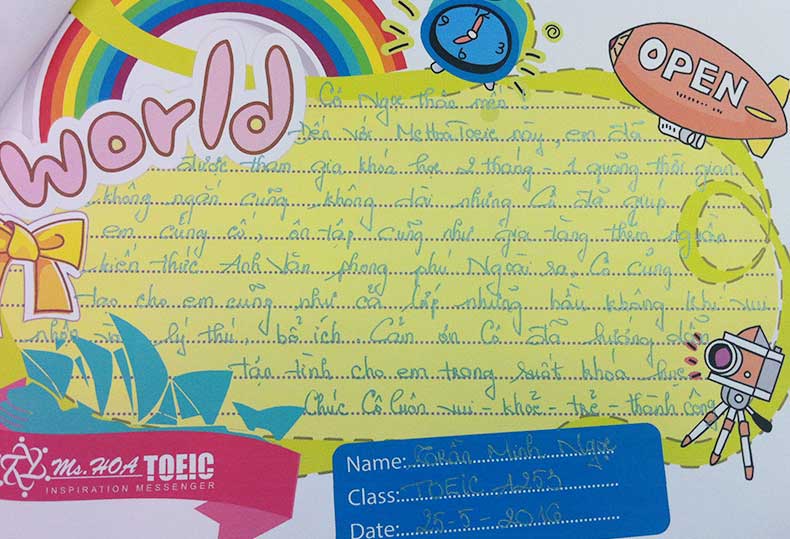 world
OPEN
Cô Ngọc thân mến!
Đến với MsHoaToeic này, em đã
được tham gia khóa học 2 tháng - 1 quãng thời gian
không ngắn cũng không dài nhưng Cô đã giúp
em củng cố, ôn tập cũng như gia tăng thêm nguồn
kiến thức Anh Văn phong phú. Ngoài ra, Cô cũng
tạo cho em cũng như cả lớp những bầu không khí vui
nhộn và lý thú, bổ ích. Cảm ơn Cô đã hướng dẫn
tận tình cho em trong suốt khóa học
Chúc Cô luôn vui - khỏe - trẻ - thành công
Ms. HOA TOEIC
INSPIRATION MESSENGER
Name: Trần Minh Ngọc
Class: TOEIC A253
Date: 25-5-2016